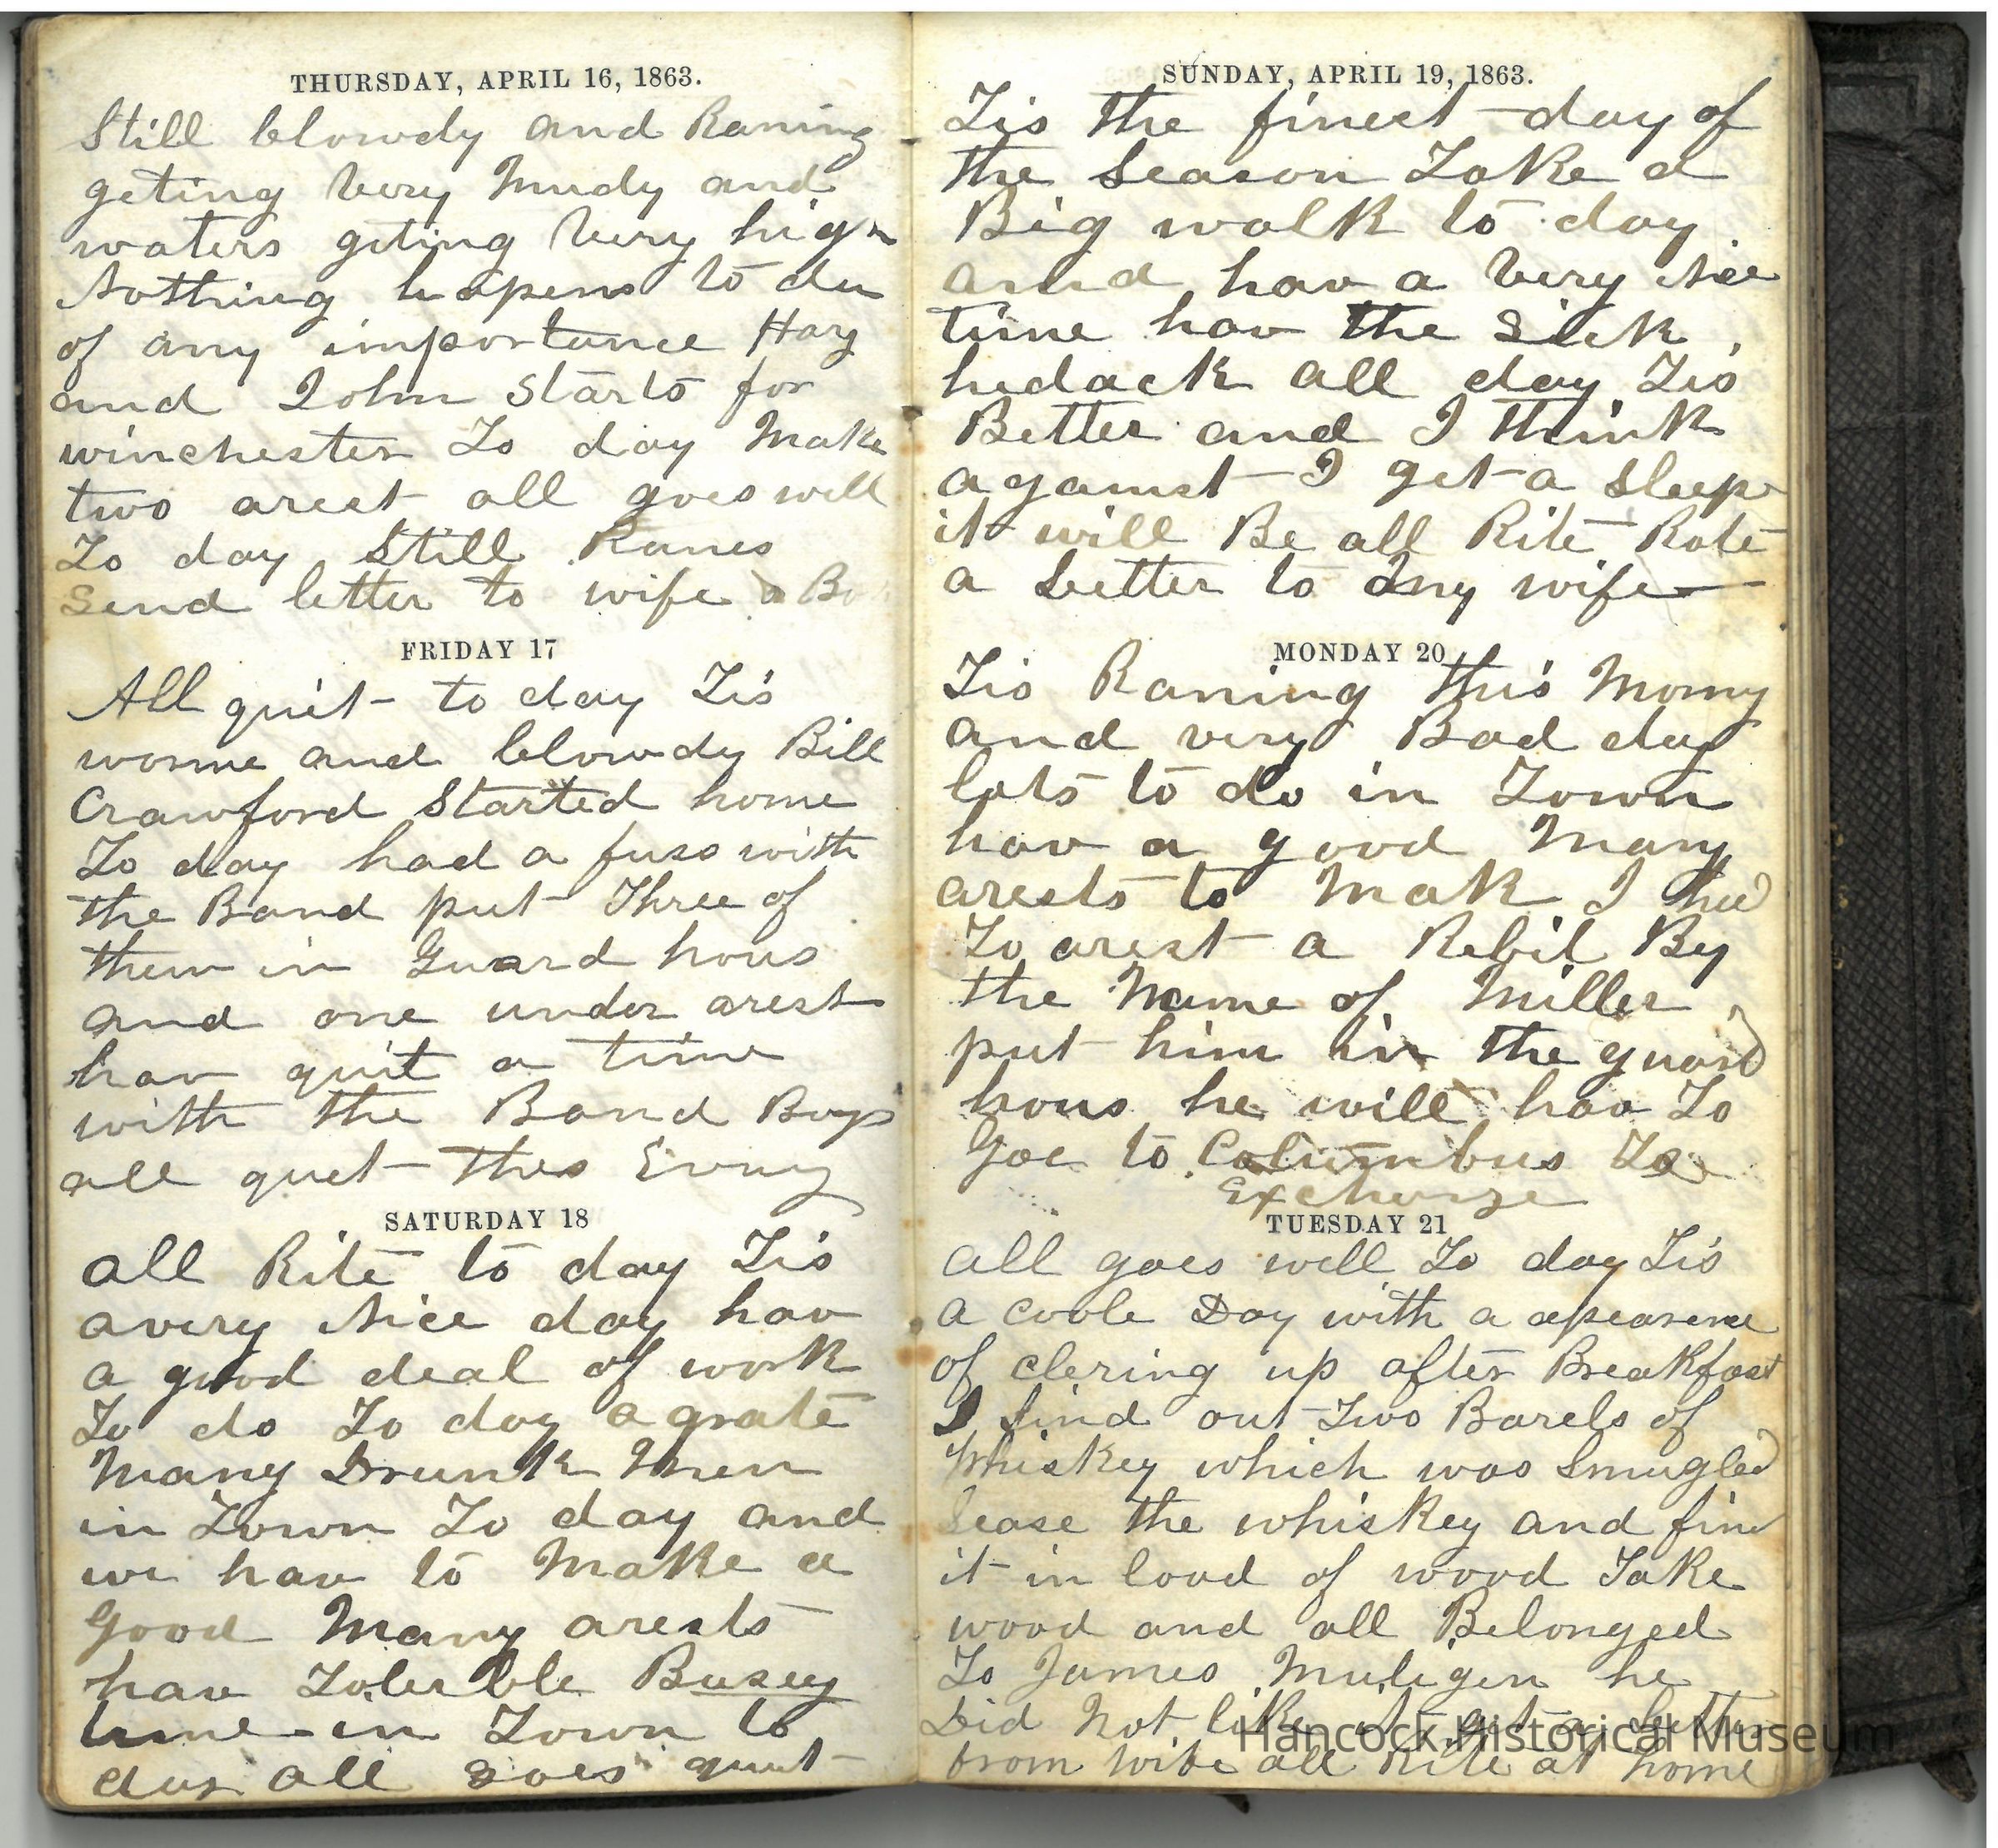 THURSDAY, APRIL 16, 1863.
Still blowdy and Raning
geting very mudy and
waters geting very high
Nothing hapens to day
of any importance Hary
and John Starts for
winchester To day Make
two arest all goes well
To day Still Ranes
Send letter to wife
FRIDAY 17
All quiet to day Tis
worme and blowdy Bill
Crawford Started home
To day had a fuss with
the Band put Three of
them in Guard hous
and one under arest
hav quit a time
with the Band Boys
all quet this Evning
SATURDAY 18
all Rite to day Tis
avery Nice day hav
a good deal of work
To do To day a grate
Many Drunk Men
in Town To day and
we hav to Make a
Good Many arests
hav Tolerble Busey
time in Town to
day all goes quiet
SUNDAY, APRIL 19, 1863.
Tis the finest day of
the Season Take a
Big walk to day
and hav a very Nice
time hav the Sick
hedack all day Tis
Better and I think
against I get a Sleep
it will Be all Rite Rote
a Letter to my wife
MONDAY 20
Tis Raning this Morny
and very Bad day
lots to do in Town
hav a good Many
arests to Mak I had
To arest a Rebil By
the Name of Miller
put him in the guard
hous he will hav To
Goe to Columbus To
Exchange
TUESDAY 21
all goes well To day Tis
a coole Day with a apearence
of clering up after Breakfast
I find out Two Barels of
Whiskey which was Smugled
Sease the whiskey and find
it in load of wood Take
wood and all Belonged
To James Muligen he
Did Not like it got a letter
from wife all Rite at home
Hancock Historical Museum